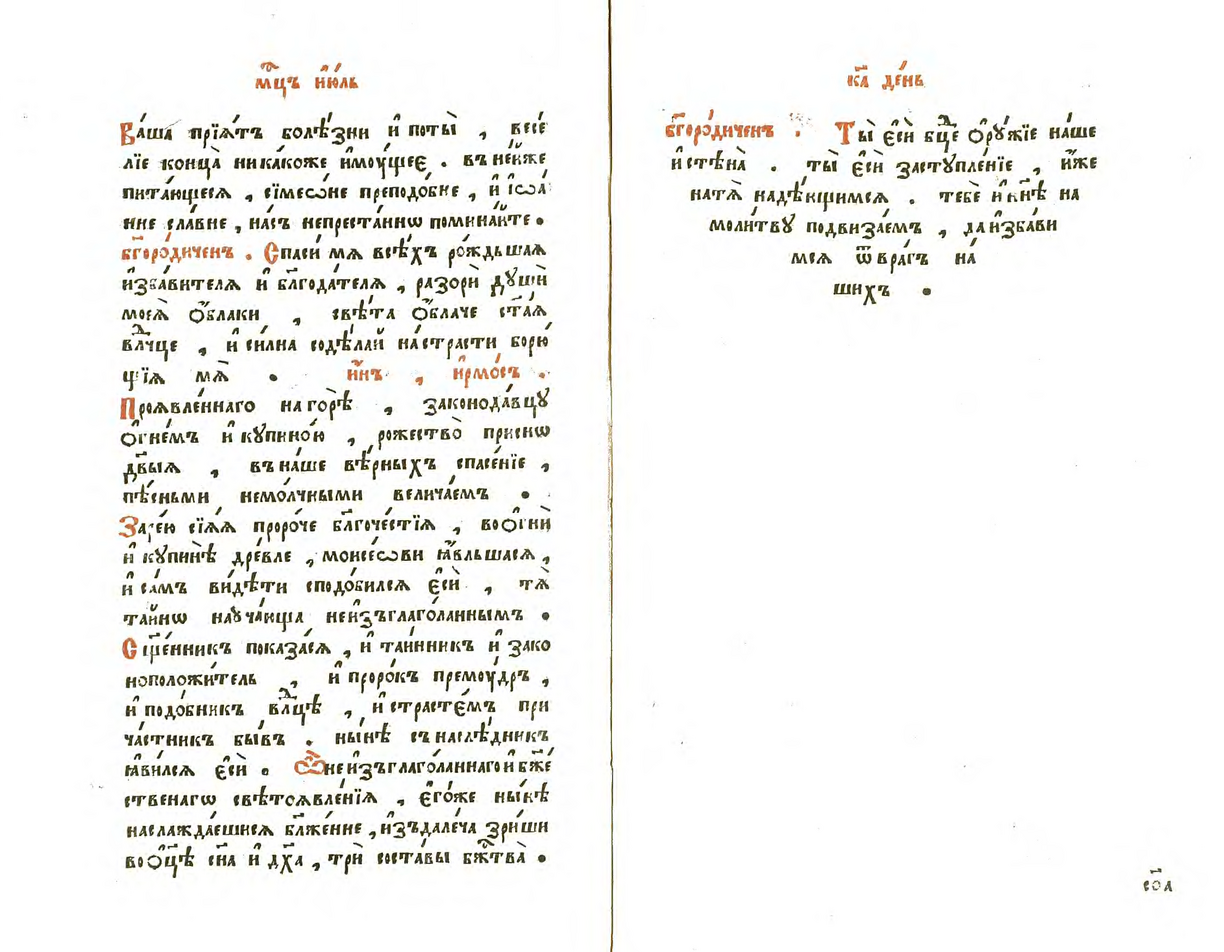 мц҃ъ і҆ю́ль
Ва́ша прїѧ́тъ болѣ́зни и҆ поты̀ , весе́
лїе конца̀ никако́же и҆мꙋ́щее . въ не́мже
пита́ющесѧ , сїмеѡ́не преподо́бне , и҆ і҆ѡа́
нне сла́вне , на́съ непреста́ннѡ помина́йте .
бг҃оро́диченъ . Спаси́ мѧ всѣ́хъ ро́ждьшаѧ
и҆зба́вителѧ и҆ бл҃года́телѧ , разорѝ дꙋшѝ
моеѧ̀ ѻ҆́блаки , свѣ́та ѻ҆́блаче ст҃а́ѧ
влⷣчце , и҆ си́лна содѣ́лай на стра́сти борю́
щїѧ мѧ̀ . и҆́нъ , і҆рмо́съ .
Проѧвле́ннаго на горѣ̀ , законода́вцꙋ
ѻ҆гне́мъ и҆ кꙋпино́ю , рожество̀ при́снѡ
дв҃ыѧ , въ на́ше вѣ́рныхъ спасе́нїе ,
пѣ́сньми немо́лчными велича́емъ .
Заре́ю сїѧ́ѧ проро́че бл҃гоче́стїѧ , во ѻ҆гнѝ
и҆ кꙋпинѣ̀ дре́вле , моисе́ѡви ꙗ҆́вльшасѧ ,
и҆ са́мъ ви́дѣти сподо́билсѧ є҆сѝ , тѧ̀
та́йнѡ наꙋча́юща неи҆зъглаго́ланнымъ .
Сщ҃е́нникъ показа́сѧ , и҆ та́инникъ и҆ зако
ноположи́тель , и҆ проро́къ премꙋ́дръ ,
и҆ подо́бникъ влⷣцѣ , и҆ страсте́мъ при
ча́стникъ бы́въ . ны́нѣ сънаслѣ́дникъ
ꙗ҆ви́лсѧ є҆сѝ . Ѽ неи҆зъглаго́ланнаго и҆ бж҃е́
ственагѡ свѣтоѧвле́нїѧ , є҆го́же ны́нѣ
наслажда́ешисѧ бл҃же́нне , и҆зъдале́ча зри́ши
во ѻ҆ц҃ѣ̀ сн҃а и҆ дх҃а , трѝ соста́вы бж҃тва̀ .
к҃а де́нь
бг҃оро́диченъ . Ты̀ є҆сѝ бц҃е ѻ҆рꙋ́жїе на́ше
и҆ стѣна̀ . ты̀ є҆сѝ застꙋпле́нїе , и҆́же
на тѧ̀ надѣ́ющимсѧ . тебѐ и҆ нн҃ѣ на
моли́твꙋ подвиза́емъ , да и҆зба́ви
мсѧ ѿ вра́гъ на́
шихъ .
со҃а